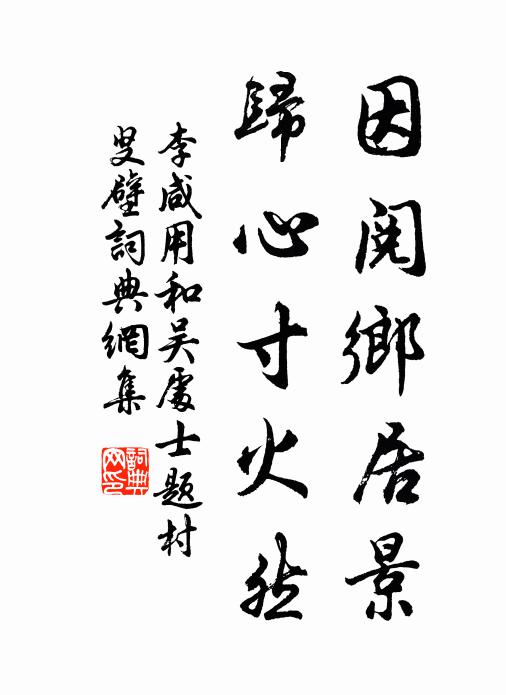 因阅鄉居景
歸心寸火然
李咸用和吴處士題村
叟壁詞典網集
詞典网印